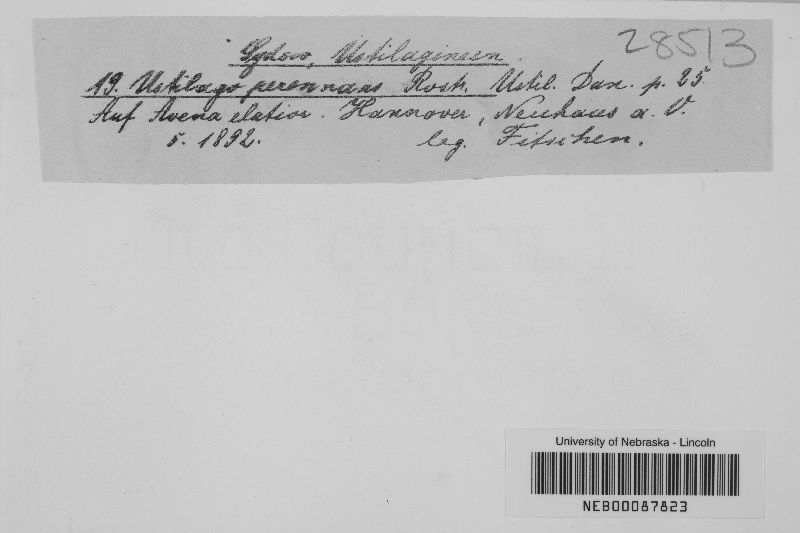 Sydow, Ustilagineen.
28513
19. Ustilago perennans Rostr. Ustil. Dan. p. 25.
Auf Avena elatior. Hannover, Neuhaus a. O.
5. 1892. leg. Fitschen.
University of Nebraska - Lincoln
NEB00087823